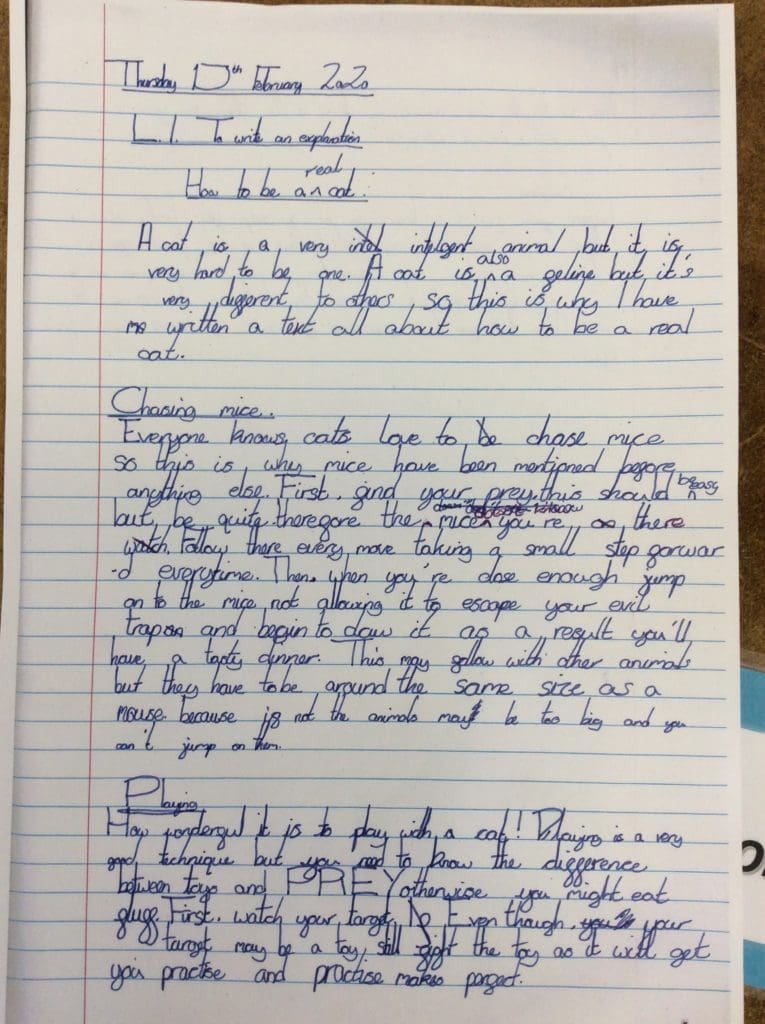 Thursday 13th February 2020
L.I. To write an explanation
How to be a real cat.
A cat is a very intelgent animal but it is
very hard to be one. A cat is also a feline but it's
very different to others, so this is why I have
written a text all about how to be a real
cat.
Chasing mice.
Everyone knows cats love to chase mice
so this is why mice have been mentioned before
anything else. First, find your prey, this should be easy
but, be quite therefore the mice you're there
Follow there every move taking a small step forwar
-d everytime. Then, when you're close enough jump
on to the mice not allowing it to escape your evil
trap and begin to claw it as a result you'll
have a tasty dinner. This may follow with other animals
but they have to be around the same size as a
mouse because if not the animals may be too big and you
can't jump on them.
Playing
How wonderful it is to play with a cat! Playing is a very
good technique but you need to know the difference
between toys and PREY otherwise you might eat
fluff. First, watch your target, Even though, your
target may be a toy, still fight the toy as it will get
you practise and practise makes perfect.